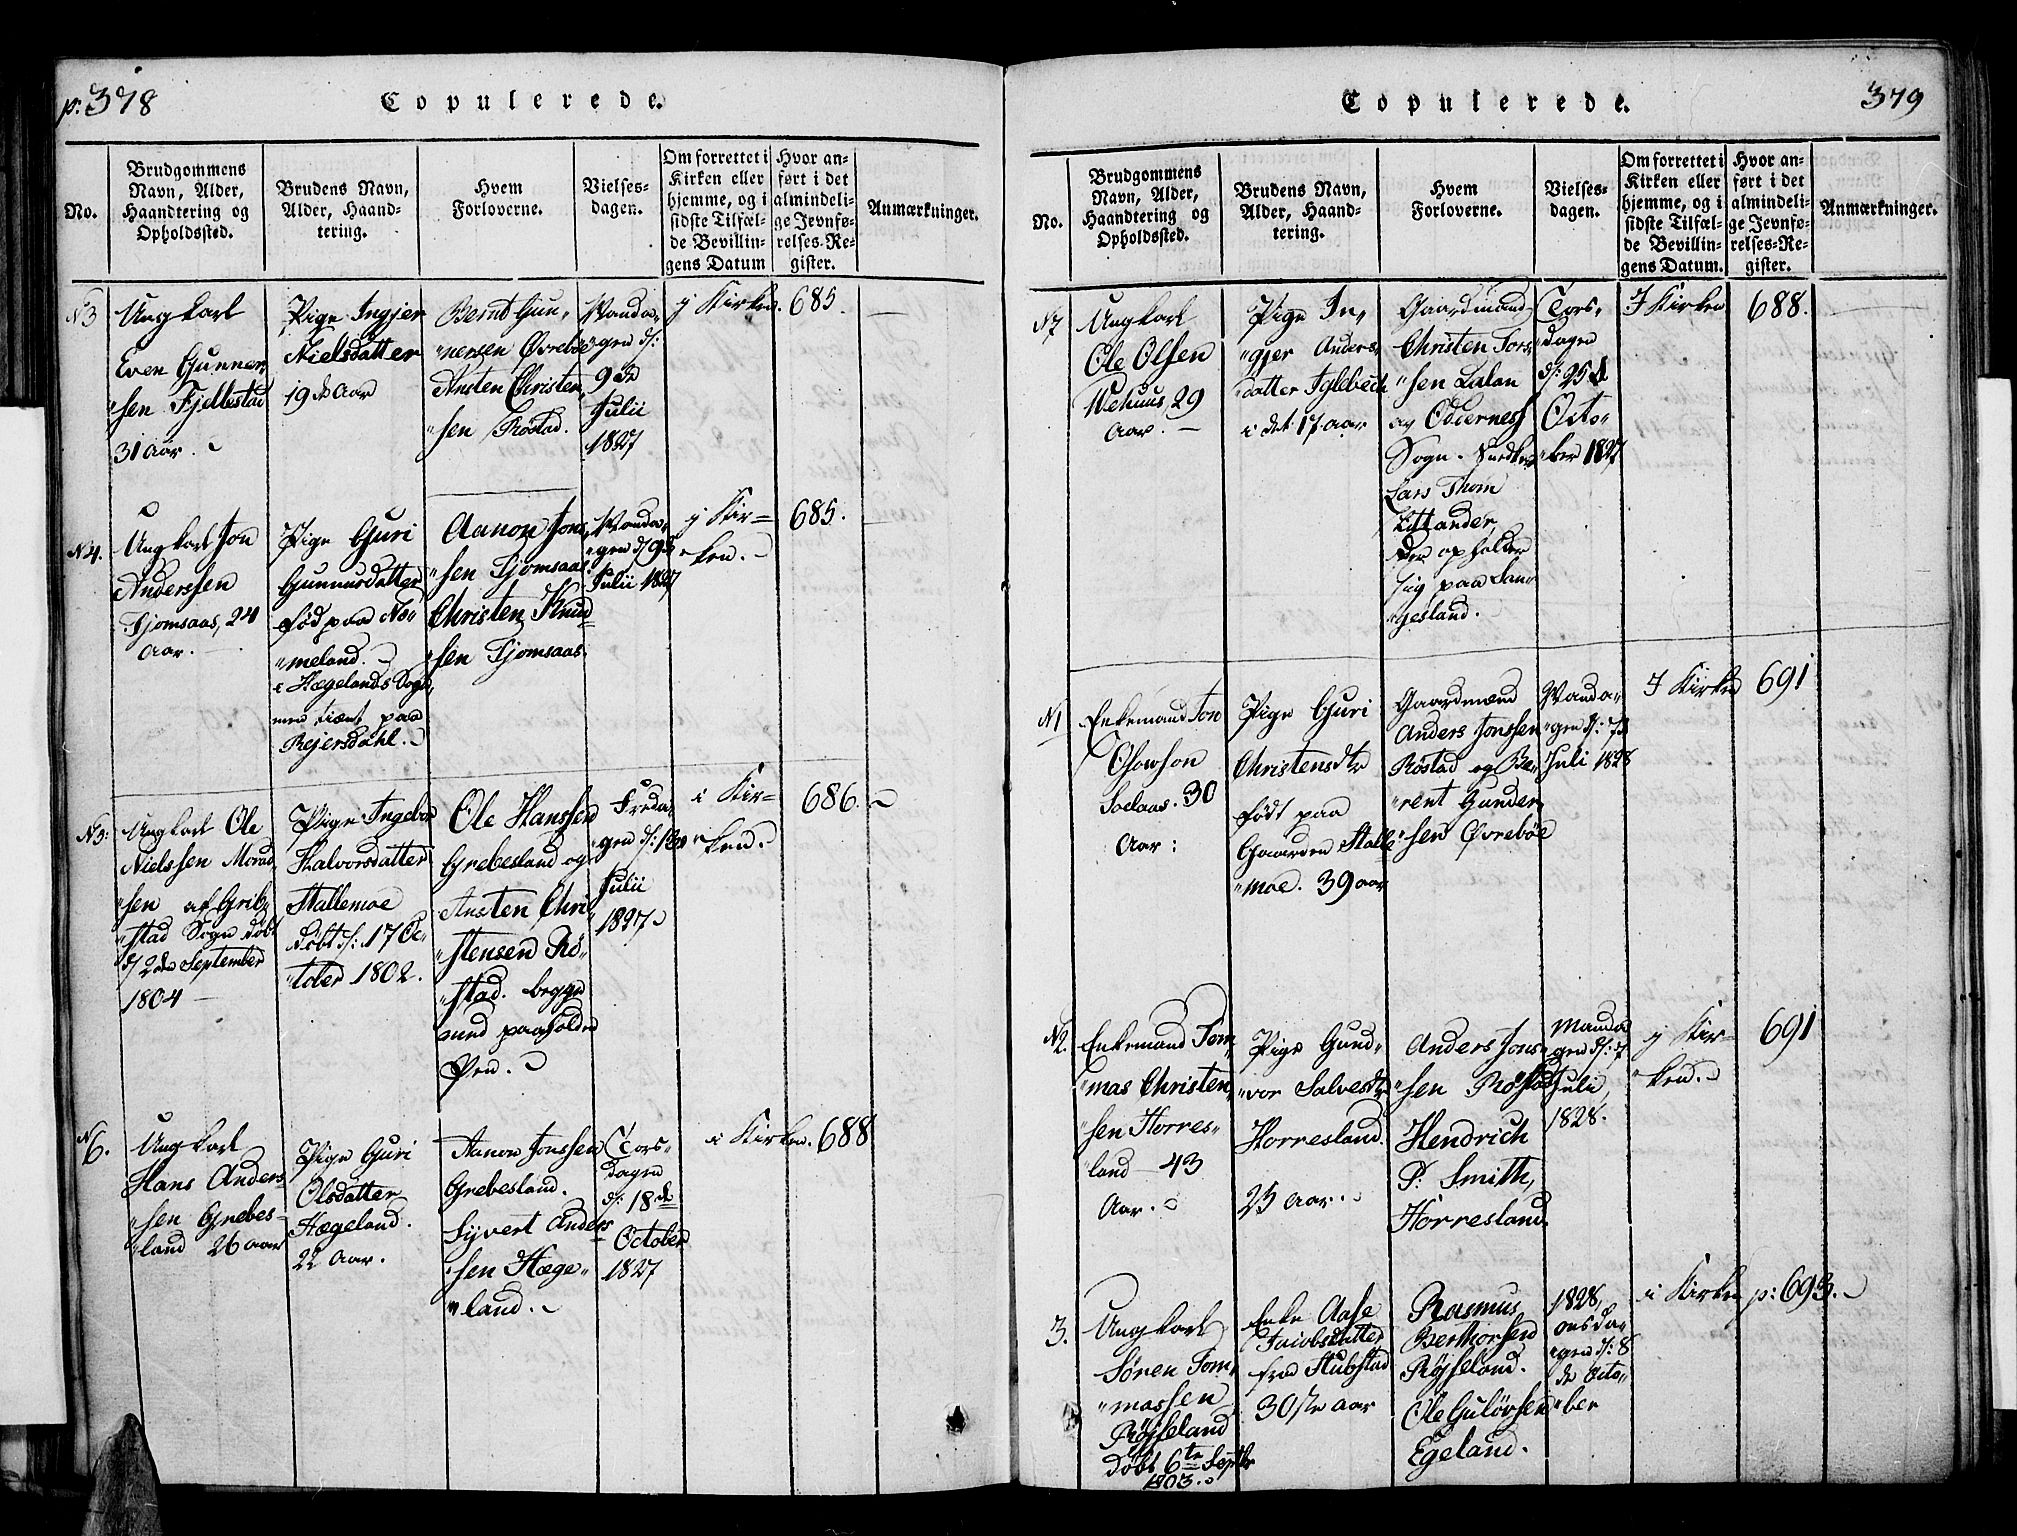 p: 378
Copulerede.
No.
Brudgommens
Navn, Alder,
Haandtering og
Opholdssted.
Brudens Navn,
Alder, Haand-
tering.
Hvem
Forloverne.
Vielses-
dagen.
Om forrettet i
Kirken eller
hjemme, og i
sidste Tilfæl-
de Bevillin-
gens Datum
Hvor an-
ført i det
almindeli-
ge Jevnfø-
relses-Re-
gister.
Anmærkninger.
N3
Ungkarl
Even Gunner„
„sen Fjellestad
31 Aar.
Pige Ingjer
Nielsdatter
19 de Aar
Bernt Gun„
„nersen Øvrebøe
Austen Christen„
„sen Røstad.
Manda„
„gen d:
9 de
Julii
1827
j Kirken.
685.
N4.
Ungkarl Jon
Anderssen
Tjomsaas, 24
Aar.
Pige Guri
Gunnusdatter
Fød paa No„
„meland.
i Hægelands Sogn,
men tient paa
Rejersdahl.
Aanon Jons„
„sen Tjomsaas.
Christen Knud„
„sen Tjomsaas.
Manda„
„gen d/ 9 de
Julii 1827
j Kir=
„ken.
685.
N5:
Ungkarl Ole
Nielssen Morad„
„sen af Grib„
„stad Sogn døbt
d/ 2 den September
1804
Pige Ingebor
Halvorsdatter
Stallemoe
Døbt d: 17 Oc„
„tober 1802.
Ole Hanssen
Grebesland og
Austen Chri„
„stensen Rø„
„stad. begge
med paaholden
Pen.
Freda„
„gen d: 13 de
Julii
1827
i Kir=
„ken.
686.
N
6.
Ungkarl
Hans Anders„
„sen Grebes„
„land 26 aar
Pige Guri
Olsdatter
Hægeland.
22 Aar.
Aanon Jonssen
Grebesland.
Syvert Anders
„sen Hæge„
„land.
Tors„
dagen
d: 18 de
October
1827
i Kirken.
688
Copulerede.
379
No.
Brudgommens
Navn, Alder,
Haandtering og
Opholdssted.
Brudens Navn,
Alder, Haand-
tering.
Hvem
Forloverne.
Vielses-
dagen.
Om forrettet i
Kirken eller
hjemme, og i
sidste Tilfæl-
de Bevillin-
gens Datum.
Hvor an-
ført i det
almindeli-
ge Jevnfø-
relses-Re-
gister.
Anmærkninger.
N7
Ungkarl
Ole Olsen
Wehuus, 29
Aar.
Pige In„
„gjer Anders„
datter Iglebeck
i det 17 aar
Gaardmand
Christen Tors„
„sen Lalan
og Oddernes
Sogn. Snedker
Lars Thom
Littander,
der opholder
sig paa Lan„
„gesland.
Tors„
dagen
d: 25 de
Octo„
„ber 1827
I Kirken
688.
N1
Enkemand Jon
Olowson
Loelaas. 30
Aar:
Pige Guri
Christensdtr
Født paa
Gaarden Stalle
„moe. 39 aar
Gaardmænd
Anders Jonssen
Røstad og Be„
„rent Gunder„
„sen Øvrebøe
Manda„
„gen d: 7 de
Juli 1828
I Kirken
691
N2.
Enkemand Tom„
„mas Christen„
„sen Horres„
„land - 43
Aar.
Pige Gund„
„vor Salvesdtr
Horresland.
25 Aar.
Anders Jons„
„sen Røstad
Hendrich
P: Smith,
Horresland
Manda
gen d: 7
Juli,
1828.
j Kir=
„ken.
691
3.
Ungkarl
Søren Tom„
„massen
Røjseland
Døbt 6te Septbr
1803.
Enke Aase
Jacobsdatter
fra Stubstad
30 ste aar
Rasmus
Berthorsen
Røjseland.
Ole Guløvsen
Egeland.
1828,
onsda„
„gen d: 8
de Octo„
„ber
i Kirken
p: 693.